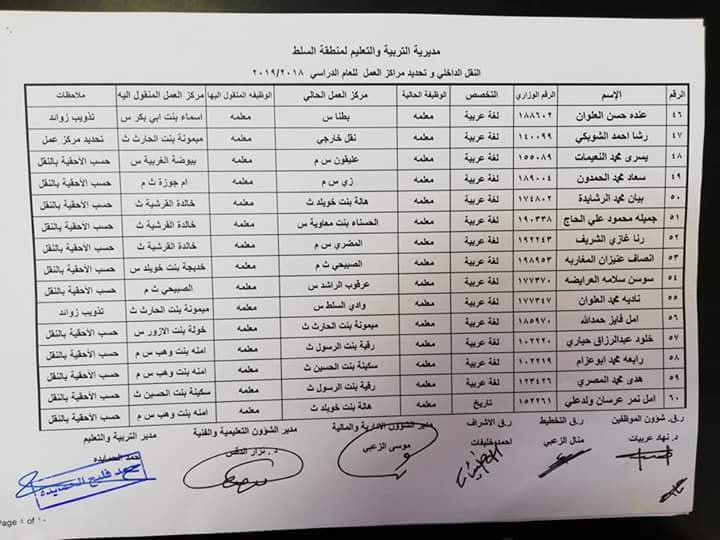 مديرية التربية والتعليم لمنطقة السلط
النقل الداخلي و تحديد مراكز العمل للعام الدراسي ٢٠١٩/٢٠١٨
الرقم الإسم الرقم الوزاري التخصص الوظيفة الحالية مركز العمل الحالي الوظيفه المنقول اليها مركز العمل المنقول اليه ملاحظات
٤٦ عنده حسن العلوان ١٨٨٦٠٢ لغة عربية معلمه بطنا س معلمه اسماء بنت ابي بكر س تذويب زوائد
٤٧ رشا احمد الشوبكي ١٤٠٠٩٩ لغة عربية معلمه نقل خارجي معلمه ميمونة بنت الحارث ث تحديد مركز عمل
٤٨ يسرى محمد النعيمات ١٥٥٠٨٩ لغة عربية معلمه عليقون س م معلمه بيوضة الغربية س حسب الأحقية بالنقل
٤٩ سعاد محمد الحمدون ١٨٩٠٠٤ لغة عربية معلمه زي س م معلمه ام جوزة ث م حسب الأحقية بالنقل
٥٠ بيان محمد الرشايدة ١٧٤٨٠٢ لغة عربية معلمه هالة بنت خويلد ث معلمه خالدة القرشية ث حسب الأحقية بالنقل
٥١ جميله محمود علي الحاج ١٩٠٣٣٨ لغة عربية معلمه الحسناء بنت معاوية س معلمه خالدة القرشية ث حسب الأحقية بالنقل
٥٢ رنا غازي الشريف ١٩٢٢٤٣ لغة عربية معلمه المضري س م معلمه خالدة القرشية ث حسب الأحقية بالنقل
٥٣ انصاف عنيزان المغاربه ١٩٨٩٥٣ لغة عربية معلمه الصبيحي ث م معلمه خديجة بنت خويلد س حسب الأحقية بالنقل
٥٤ سوسن سلامه العرايضه ١٧٧٣٧٠ لغة عربية معلمه عرقوب الراشد س معلمه الصبيحي ث م حسب الأحقية بالنقل
٥٥ ناديه محمد العلوان ١٧٧٣٤٧ لغة عربية معلمه وادي السلط س معلمه ميمونة بنت الحارث ث تذويب زوائد
٥٦ امل فايز حمدالله ١٨٥٩٧٠ لغة عربية معلمه ميمونة بنت الحارث ث معلمه خولة بنت الازور س حسب الأحقية بالنقل
٥٧ خلود عبدالرزاق حياري ١٠٢٢٢٠ لغة عربية معلمه رقية بنت الرسول ث معلمه امنه بنت وهب س م حسب الأحقية بالنقل
٥٨ رابعه محمد ابوعزام ١٠٢٢١٩ لغة عربية معلمه سكينة بنت الحسين ث معلمه امنه بنت وهب س م حسب الأحقية بالنقل
٥٩ هدى محمد المصري ١٢٣٤٢٦ لغة عربية معلمه رقية بنت الرسول ث معلمه سكينة بنت الحسين ث حسب الأحقية بالنقل
٦٠ امل نمر عرسان ولدعلي ١٥٢٢٦١ تاريخ معلمه هالة بنت خويلد ث معلمه امنه بنت وهب س م حسب الأحقية بالنقل
ر.ق. شؤون الموظفين ر.ق التخطيط ر.ق الاشراف مدير الشؤون الادارية والمالية مدير الشؤون التعليمية والفنية مدير التربية والتعليم
د. نهاد عربيات منال الزعبي احمد خليفات موسى الزعبي د. نزار الدقس حمد الحمايده
حمد فليح الحمايده
Page ٤ of ١٠